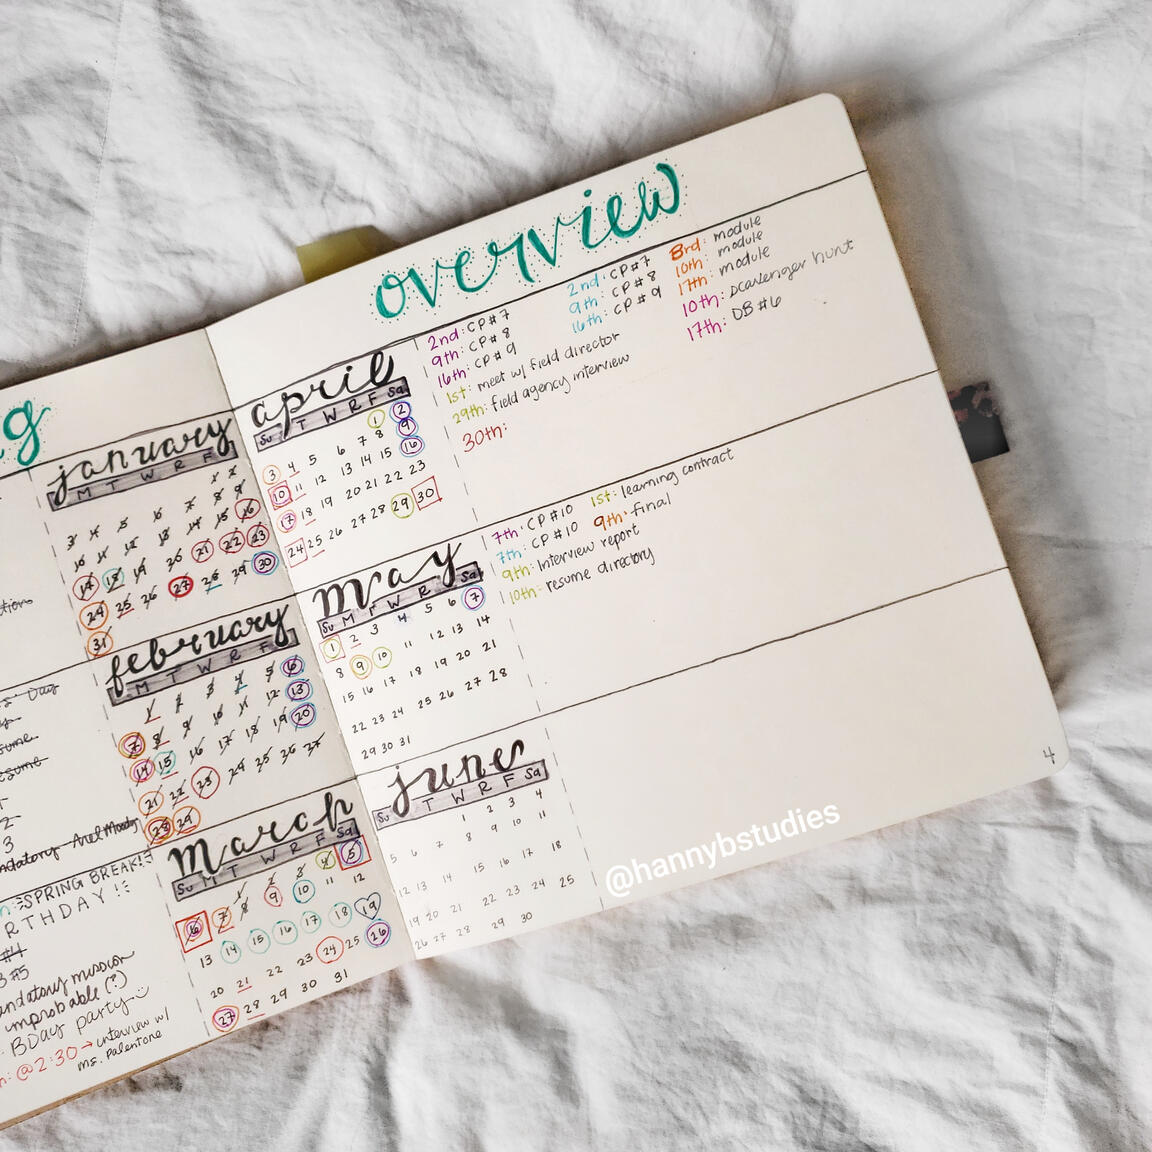 g
january
M T W R F
1 2
3 4 5 6 7 8 9
10 11 12 13 14 15 16
17 18 19 20 21 22 23
24 25 26 27 28 29 30
31
february
M T W R F
1 2 3 4 5 6
7 8 9 10 11 12 13
14 15 16 17 18 19 20
21 22 23 24 25 26 27
28 29
march
Su M T W R F Sa
1 2 3 4 5
6 7 8 9 10 11 12
13 14 15 16 17 18 19
20 21 22 23 24 25 26
27 28 29 30 31
Day
2
3
SPRING BREAK!
RTHDAY!
#4
#5
mandatory mission
improbable (?)
BDay party
@2:30 → interview w/
ms. Palentone
overview
april
Su T W R F Sa
1 2
3 4 5 6 7 8 9
10 11 12 13 14 15 16
17 18 19 20 21 22 23
24 25 26 27 28 29 30
2nd: CP#7
9th: CP#8
16th: CP#9
1st: meet w/ field director
29th: field agency interview
30th:
2nd: CP#7
9th: CP#8
16th: CP#9
3rd: module
10th: module
17th: module
10th: scavenger hunt
17th: DB #6
may
Su M T W R F Sa
1 2 3 4 5 6 7
8 9 10 11 12 13 14
15 16 17 18 19 20 21
22 23 24 25 26 27 28
29 30 31
7th: CP #10
7th: CP #10
9th: Interview report
10th: resume directory
1st: learning contract
9th: final
june
Su T W R F Sa
1 2 3 4
5 6 7 8 9 10 11
12 13 14 15 16 17 18
19 20 21 22 23 24 25
26 27 28 29 30
4
@hannybstudies